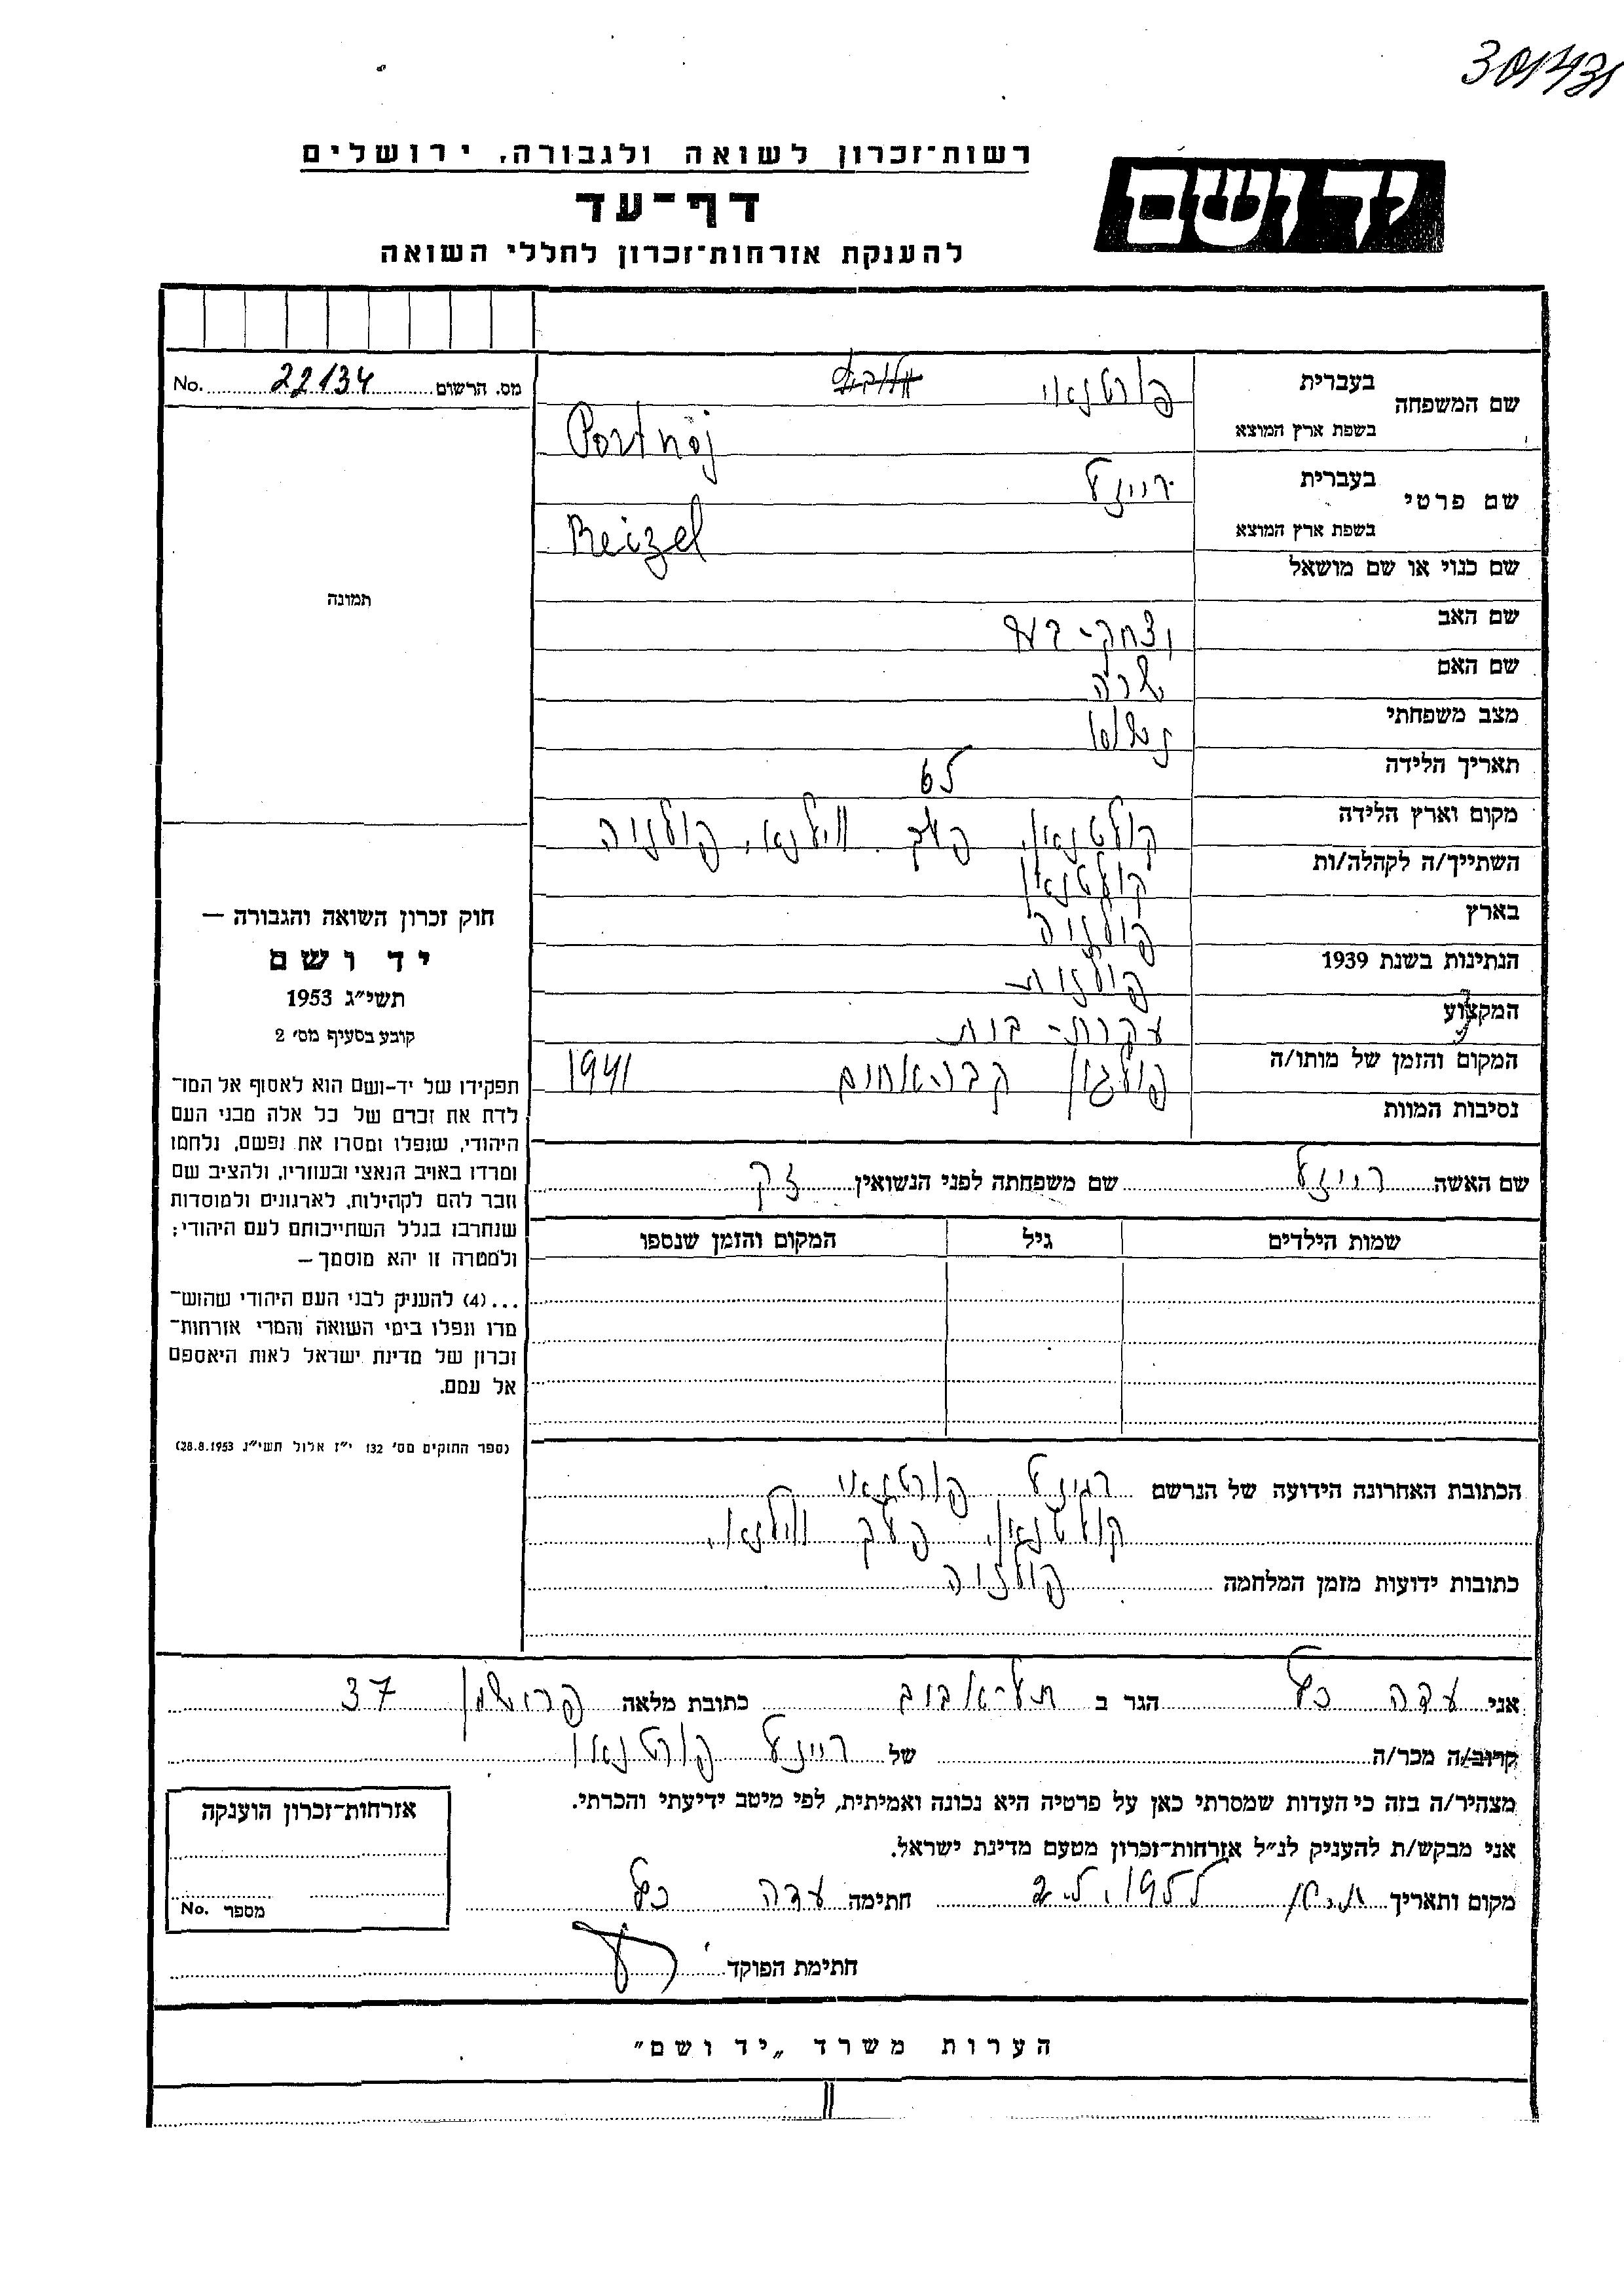 רשות־זכרון לשואה ולגבורה, ירושלים
יד ושם
דף־עד
להענקת אזרחות־זכרון לחללי השואה
מס. הרשום 22134 No.
שם המשפחה בעברית פורטנאוי
בשפת ארץ המוצא Portnoj
שם פרטי בעברית רייזל
בשפת ארץ המוצא Reizel
תמונה
שם כנוי או שם מושאל
שם האב יצחק-
שם האם שרה
מצב משפחתי
תאריך הלידה 65
מקום וארץ הלידה קולטנאן, פלך ווילנא, פולניה
השתייך/ה לקהלה/ות קולטנאן
בארץ פולניה
הנתינות בשנת 1939 פולנית
המקצוע עקרת-בית
המקום והזמן של מותו/ה פוליגון קבר-אחים 1941
נסיבות המוות
שם האשה רייזל שם משפחתה לפני הנשואין זק
שמות הילדים גיל המקום והזמן שנספו
חוק זכרון השואה והגבורה —
יד ושם
תשי״ג 1953
קובע בסעיף מס׳ 2
תפקידו של יד-ושם הוא לאסוף אל המו־
לדת את זכרם של כל אלה מבני העם
היהודי, שנפלו ומסרו את נפשם, נלחמו
ומרדו באויב הנאצי ובעוזריו, ולהציב שם
וזכר להם לקהילות, לארגונים ולמוסדות
שנחרבו בגלל השתייכותם לעם היהודי;
ולמטרה זו יהא מוסמך —
...(4) להעניק לבני העם היהודי שהוש־
מדו ונפלו בימי השואה והמרי אזרחות־
זכרון של מדינת ישראל לאות היאספם
אל עמם.
(ספר החוקים מס׳ 132 י״ז אלול תשי״ג 28.8.1953)
הכתובת האחרונה הידועה של הנרשם רייזל פורטנאוי
קולטנאן, פלך ווילנא,
כתובות ידועות מזמן המלחמה פולניה
אני עדה כץ הגר ב תל-אביב כתובת מלאה פרישמן 37
קרוב/ה מכר/ה של רייזל פורטנאוי
מצהיר/ה בזה כי העדות שמסרתי כאן על פרטיה היא נכונה ואמיתית, לפי מיטב ידיעתי והכרתי.
אני מבקש/ת להעניק לנ״ל אזרחות־זכרון מטעם מדינת ישראל.
מקום ותאריך חתימה עדה כץ
חתימת הפוקד
אזרחות־זכרון הוענקה
מספר No.
הערות משרד „יד ושם"